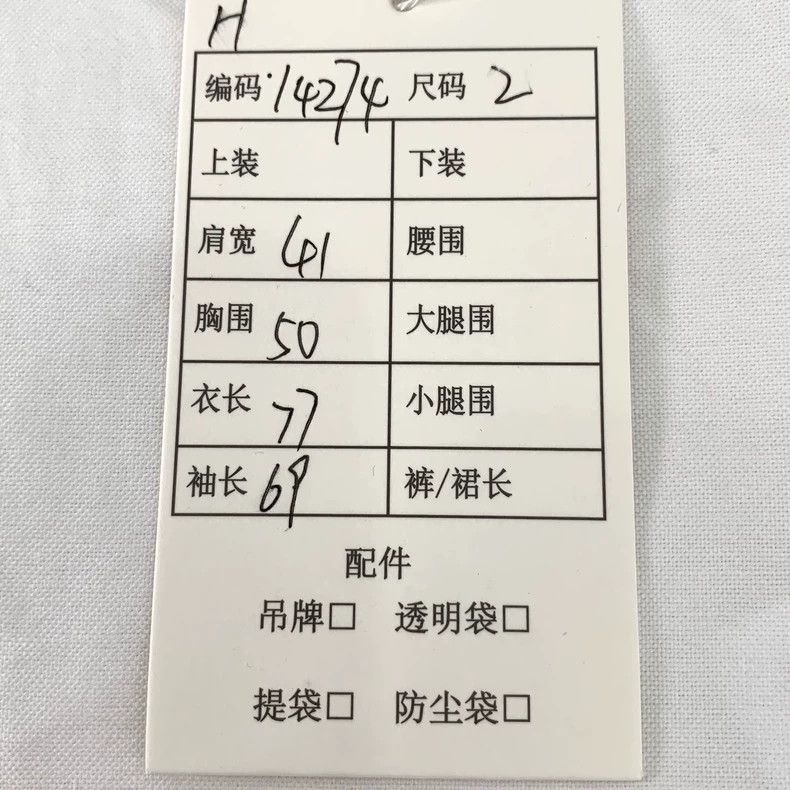 H
编码·14274 尺码 2
上装 下装
肩宽 41 腰围
胸围 50 大腿围
衣长 77 小腿围
袖长 69 裤/裙长
配件
吊牌□ 透明袋□
提袋□ 防尘袋□